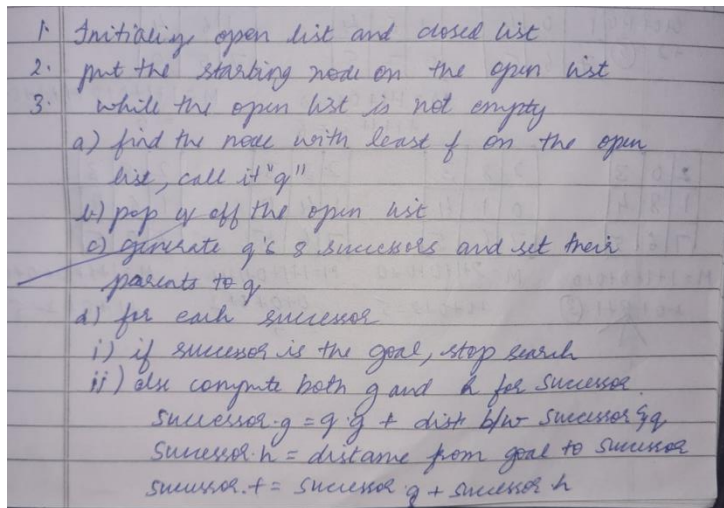 1. Initialize open list and closed list
2. put the starting node on the open list
3. while the open list is not empty
a) find the node with least f on the open
list, call it "q"
b) pop q off the open list
c) generate q's 8 successors and set their
parents to q
d) for each successor
i) if successor is the goal, stop search
ii) else compute both g and h for successor
successor.g = q.g + dist b/w successor & q
Successor.h = distance from goal to successor
successor.f = successor.g + successor.h